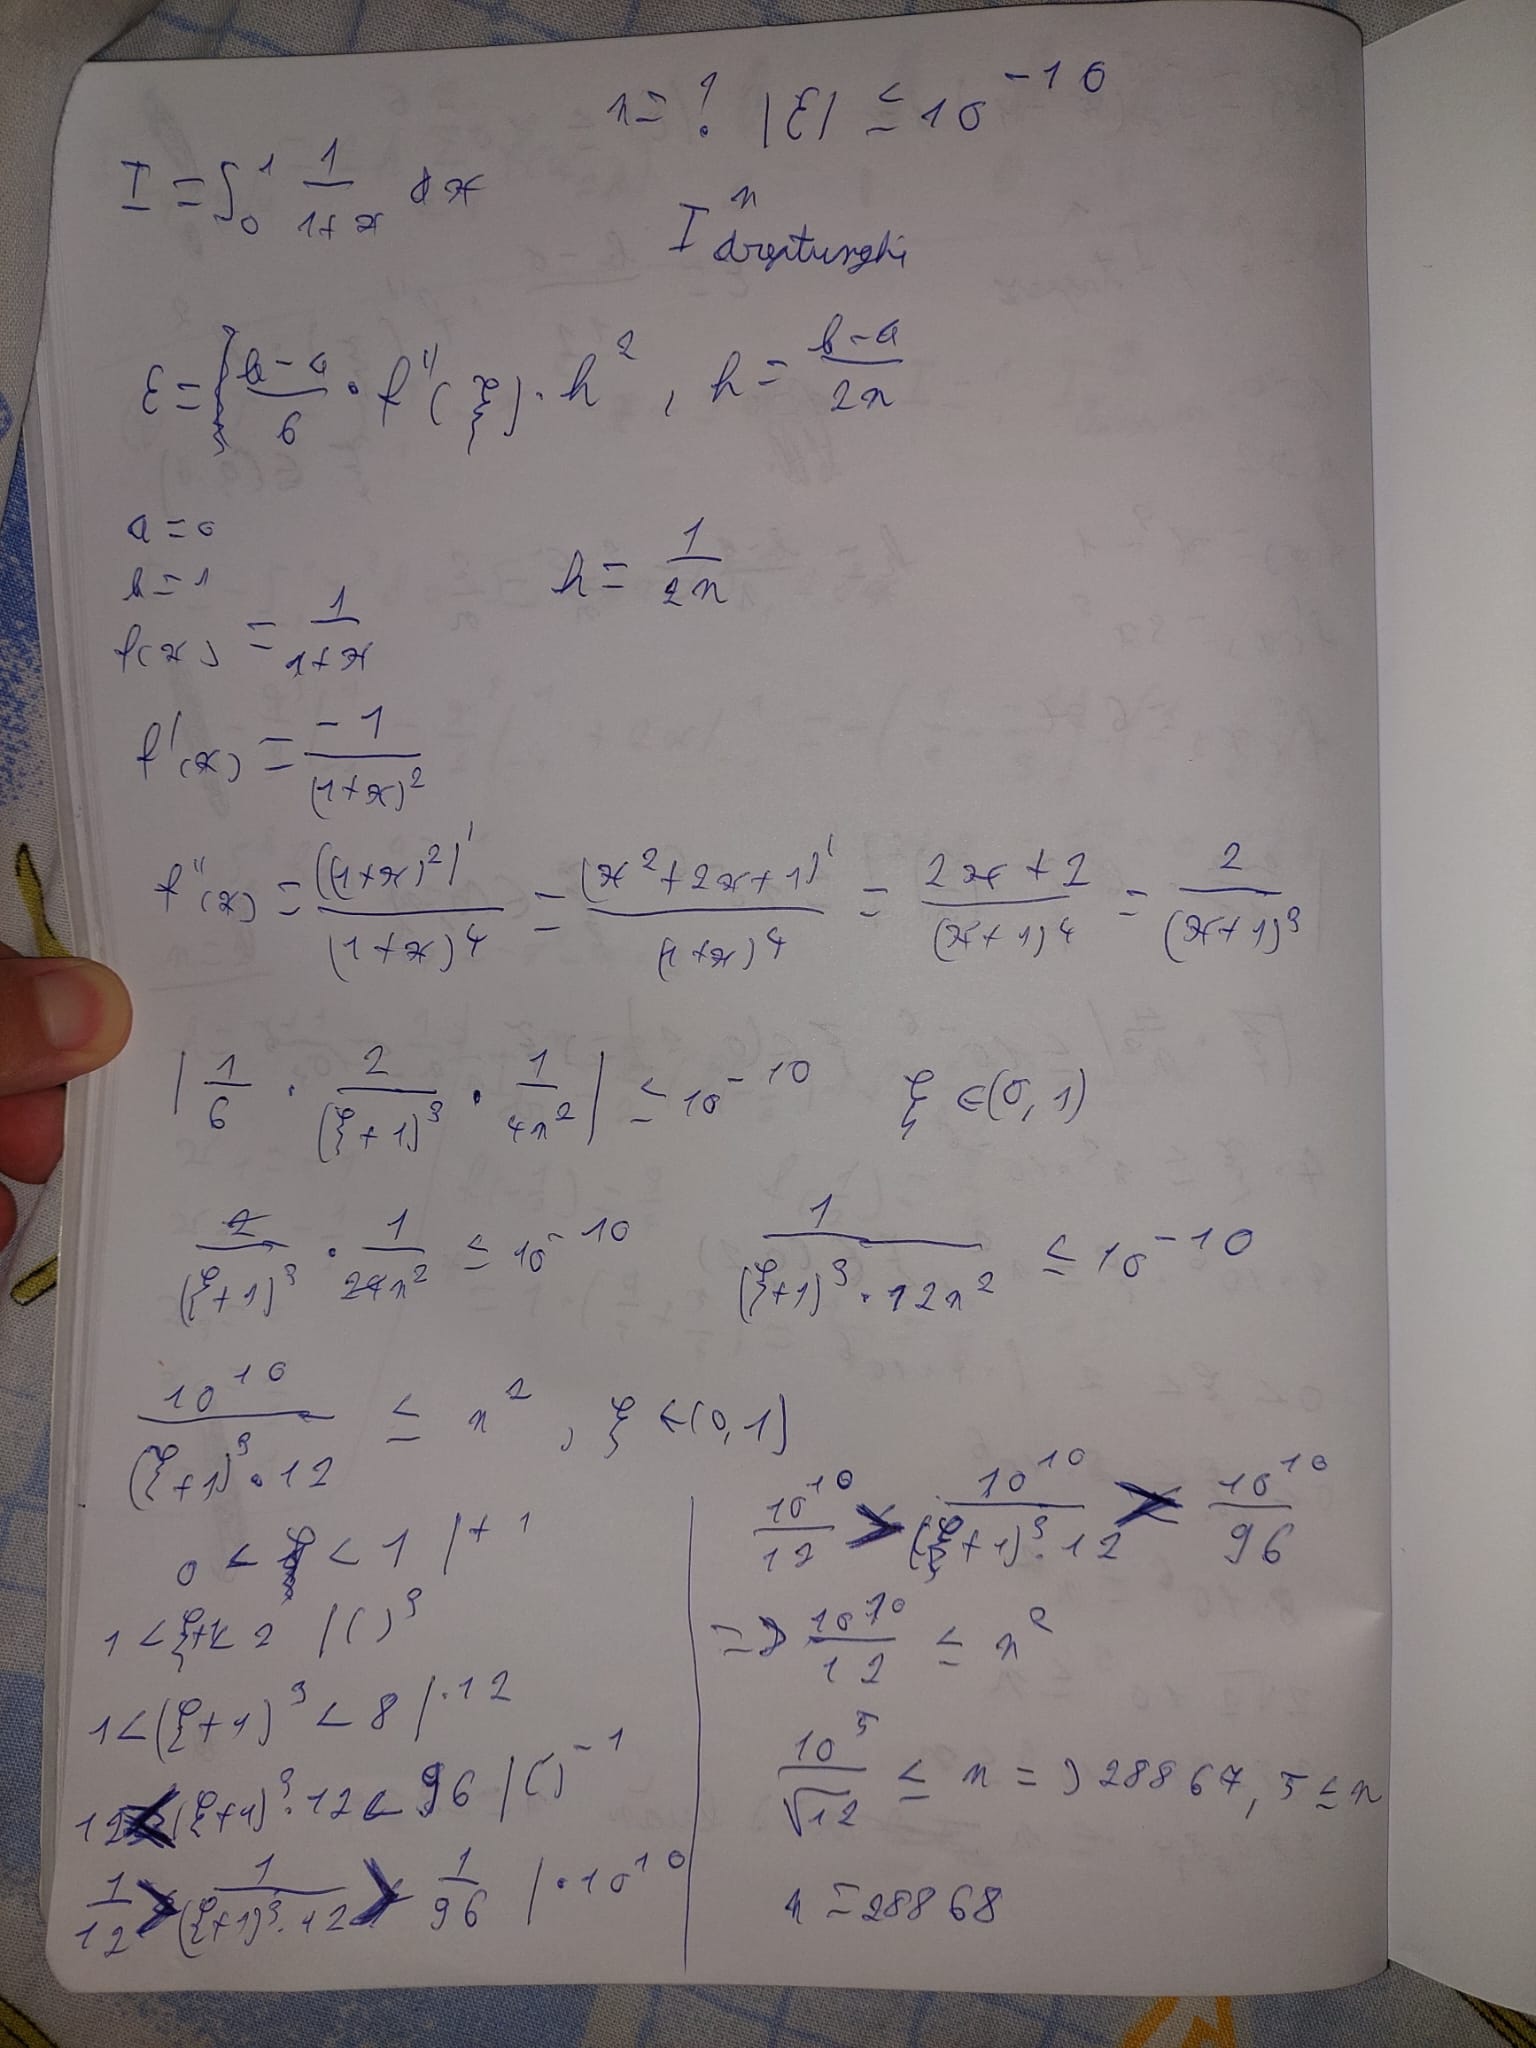 n = ? |ε| ≤ 10^{-10}
I = ∫_0^1 1/(1+x) dx
I^n dreptunghi
ε = (b-a)/6 · f''(ξ) · h^2 , h = (b-a)/(2n)
a = 0
b = 1
h = 1/(2n)
f(x) = 1/(1+x)
f'(x) = -1/(1+x)^2
f''(x) = ((1+x)^2)'/(1+x)^4 = (x^2+2x+1)'/(1+x)^4 = (2x+2)/(x+1)^4 = 2/(x+1)^3
|1/6 · 2/(ξ+1)^3 · 1/(4n^2)| ≤ 10^{-10} ξ ∈ (0, 1)
2/(ξ+1)^3 · 1/(24n^2) ≤ 10^{-10} 1/((ξ+1)^3 · 12n^2) ≤ 10^{-10}
10^{10}/((ξ+1)^3 · 12) ≤ n^2 , ξ ∈ (0, 1)
0 < ξ < 1 |+1
1 < ξ+1 < 2 |( )^3
1 < (ξ+1)^3 < 8 |·12
12 < (ξ+1)^3 · 12 < 96 |( )^{-1}
1/12 > 1/((ξ+1)^3 · 12) > 1/96 |·10^{10}
10^{10}/12 > 10^{10}/((ξ+1)^3 · 12) > 10^{10}/96
=> 10^{10}/12 ≤ n^2
10^5/√12 ≤ n => 28867,5 ≤ n
n = 28868